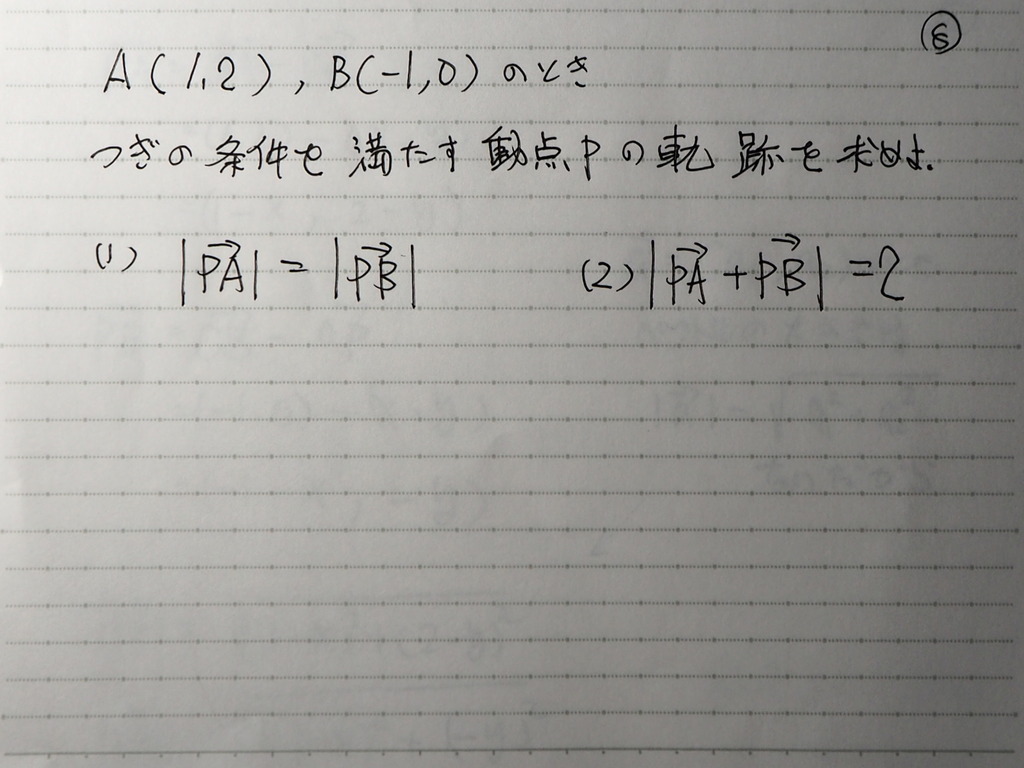 ⑧
A(1,2), B(-1,0)のとき
つぎの条件を満たす動点Pの軌跡を求めよ.
(1) |PA→| = |PB→| (2) |PA→ + PB→| = 2